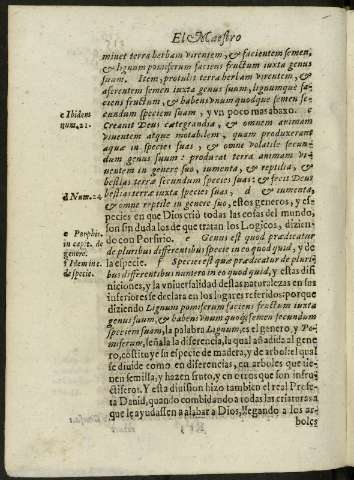 El Maestro
minet terra herbam virentem, & facientem semen,
& lignum pomiferum faciens fructum iuxta genus
suum. Item, protulit terra herbam virentem, &
aferentem semen iuxta genus suum, lignumque fa-
ciens fructum, & habens unum quodque semen se-
cundum speciem suam, y vn poco mas abaxo. c
c Ibidem
num. 21.
Creauit Deus cætegrandia, & omnem animam
viuentem atque motabilem, quam produxerant
aquæ in species suas, & omne volatile secun-
dum genus suum: producat terra animam vi-
uentem in genere suo, iumenta, & reptilia, &
bestias terræ secundum species suas: & fecit Deus
bestias terræ iuxta species suas, d & iumenta,
d Num. 24
& omne reptile in genere suo, estos generos, y es-
pecies en que Dios crió todas las cosas del mundo,
son sin duda los de que tratan los Logicos, dizien-
do con Porfirio. e Genus est quod prædicatur
e Porphi.
in capit. de
genere.
de pluribus differentibus specie in eo quod quid, y de
la especie. f Species est que prædicatur de pluri
f Idem in c.
de specie.
bus differentibus numero in eo quod quid, y estas difi
niciones, y la vniuersalidad destas naturalezas en sus
inferiores se declara en los lugares referidos: porque
diziendo Lignum pomiferum faciens fructum iuxta
genus suum, & habens vnum quodque semen secundum
speciem suam, la palabra Lignum, es el genero, y Po-
miferum, señala la diferencia, la qual añadida al gene
ro, costituye su especie de madera, y de arbol: el qual
se diuide como en diferencias, en arboles que tie-
nen semilla, y hazen fruto, y en otros que son infru-
ctiferos. Y esta diuision hizo tambien el real Profe-
ta Dauid, quando combidando a todas las criaturas a
que le ayudassen a alabar a Dios, llegando a los ar-
boles